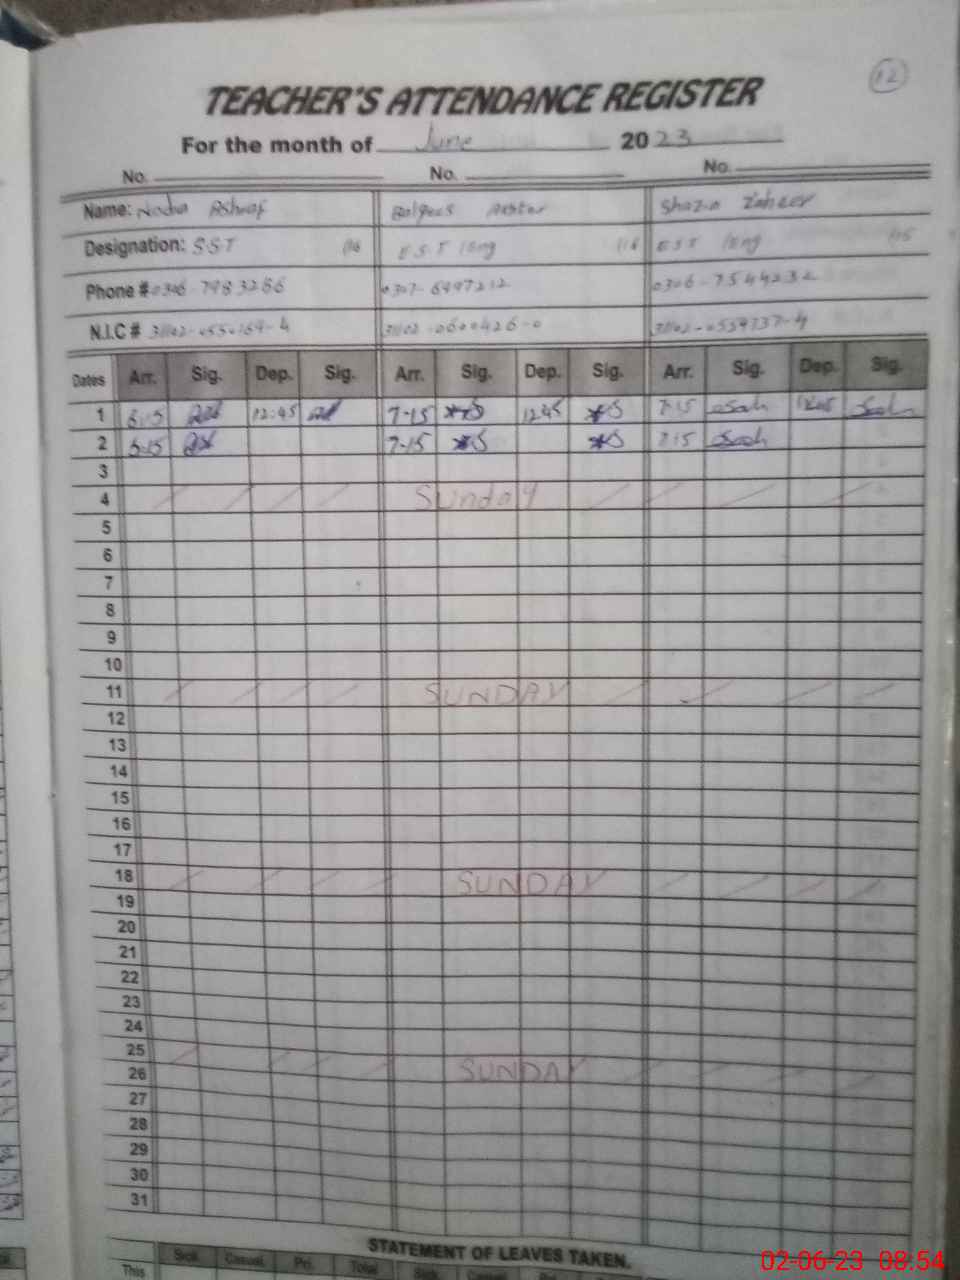 12
TEACHER'S ATTENDANCE REGISTER
For the month of June 2023
No. No. No.
Name: Nadia Ashraf Balqees Akhtar Shazia Zaheer
Designation: SST /16 E.S.T /Eng /16 EST /Eng /15
Phone # 0306-7983286 0307-6997212 0306-7544232
N.I.C # 31102-0550169-4 31102-0600426-0 31102-0559737-4
Dates Arr. Sig. Dep. Sig. Arr. Sig. Dep. Sig. Arr. Sig. Dep. Sig.
1 6:15 12:45 7-15 1245 7-15
2 6:15 7-15 7:15
3
4 Sunday
5
6
7
8
9
10
11 SUNDAY
12
13
14
15
16
17
18 SUNDAY
19
20
21
22
23
24
25 SUNDAY
26
27
28
29
30
31
STATEMENT OF LEAVES TAKEN.
This Sick Casual Pri. Total Sick
02-06-23 08:54